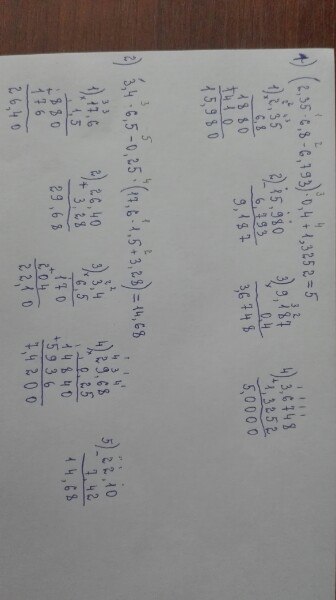 1) (2,35 · 6,8 - 6,793) · 0,4 + 1,3252 = 5
1) 2,35 2) 15,980 3) 9,187 4) 3,6748
× 6,8 - 6,793 × 0,4 + 1,3252
1880 9,187 3,6748 5,0000
+ 1410
15,980
2) 3,4 · 6,5 - 0,25 · (17,6 · 1,5 + 3,28) = 14,68
1) 17,6 2) 26,40 3) 3,4 4) 29,68 5) 22,10
× 1,5 + 3,28 × 6,5 × 0,25 - 7,42
+ 880 29,68 + 170 + 14840 14,68
176 204 5936
26,40 22,10 7,4200